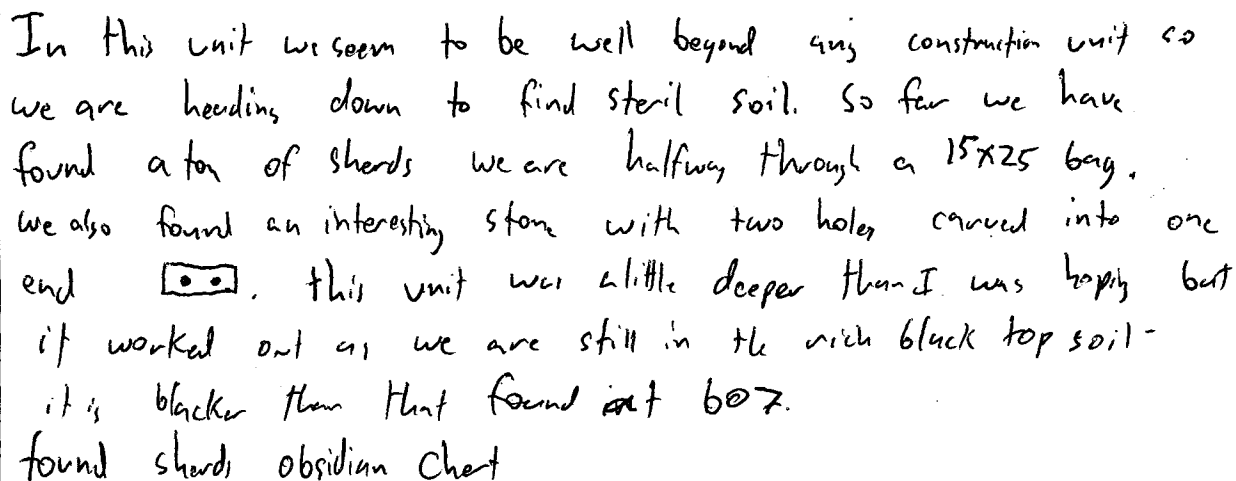 In this unit we seem to be well beyond any construction unit so
we are heading down to find steril soil. So far we have
found a ton of sherds we are halfway through a 15x25 bag.
we also found an interesting stone with two holes carved into one
end . this unit was a little deeper than I was hoping but
it worked out as we are still in the rich black top soil-
it is blacker than that found at 607.
found sherds obsidian Chert